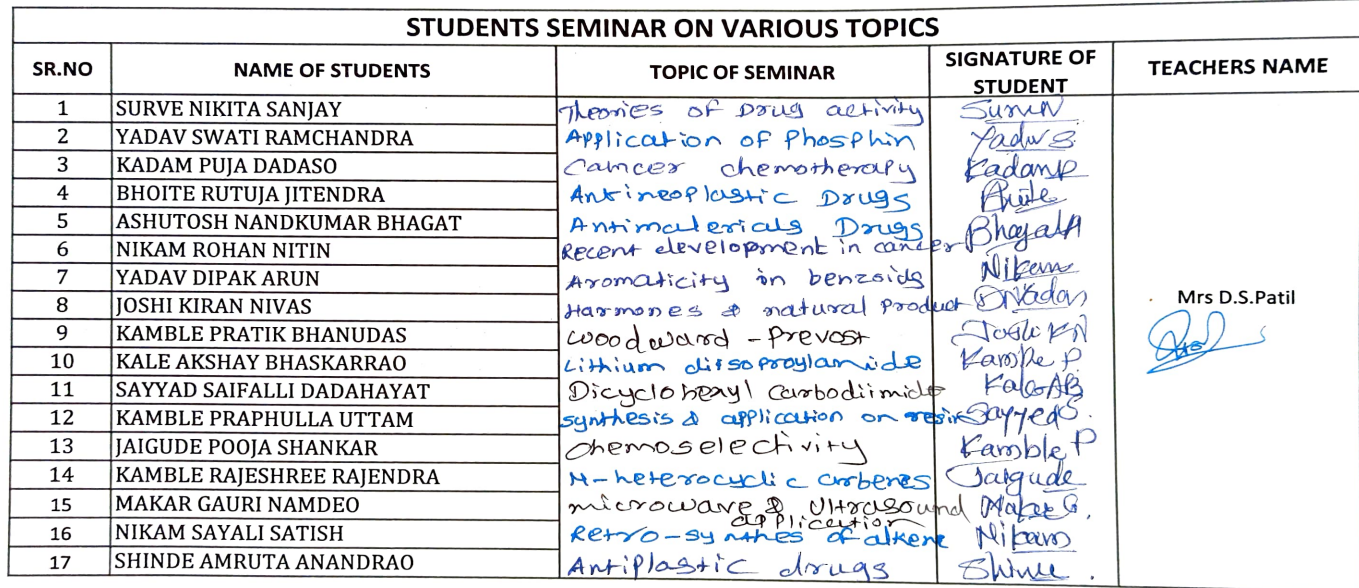 STUDENTS SEMINAR ON VARIOUS TOPICS
SR.NO NAME OF STUDENTS TOPIC OF SEMINAR SIGNATURE OF STUDENT TEACHERS NAME
1 SURVE NIKITA SANJAY Theories of Drug activity SurveN
2 YADAV SWATI RAMCHANDRA Application of Phosphin Yadav S.
3 KADAM PUJA DADASO Cancer chemotherapy KadamP
4 BHOITE RUTUJA JITENDRA Antineoplastic Drugs
5 ASHUTOSH NANDKUMAR BHAGAT Antimaterials Drugs BhagatA
6 NIKAM ROHAN NITIN Recent development in cancer Nikam
7 YADAV DIPAK ARUN Aromaticity in benzoids DNadav
8 JOSHI KIRAN NIVAS Harmones & natural Product Joshi KN
9 KAMBLE PRATIK BHANUDAS woodward - Prevost Kamble P.
10 KALE AKSHAY BHASKARRAO Lithium diisoproylamide KaleAB
11 SAYYAD SAIFALLI DADAHAYAT Dicyclohexyl Carbodiimide SayyedS.
12 KAMBLE PRAPHULLA UTTAM synthesis & application on resin Kamble P
13 JAIGUDE POOJA SHANKAR chemoselectivity Jaigude
14 KAMBLE RAJESHREE RAJENDRA N-heterocyclic carbenes
15 MAKAR GAURI NAMDEO microwave & Ultrasound application Makar G.
16 NIKAM SAYALI SATISH Retro-synthes of alkene Nikam
17 SHINDE AMRUTA ANANDRAO Antiplastic drugs Shinde.
Mrs D.S.Patil